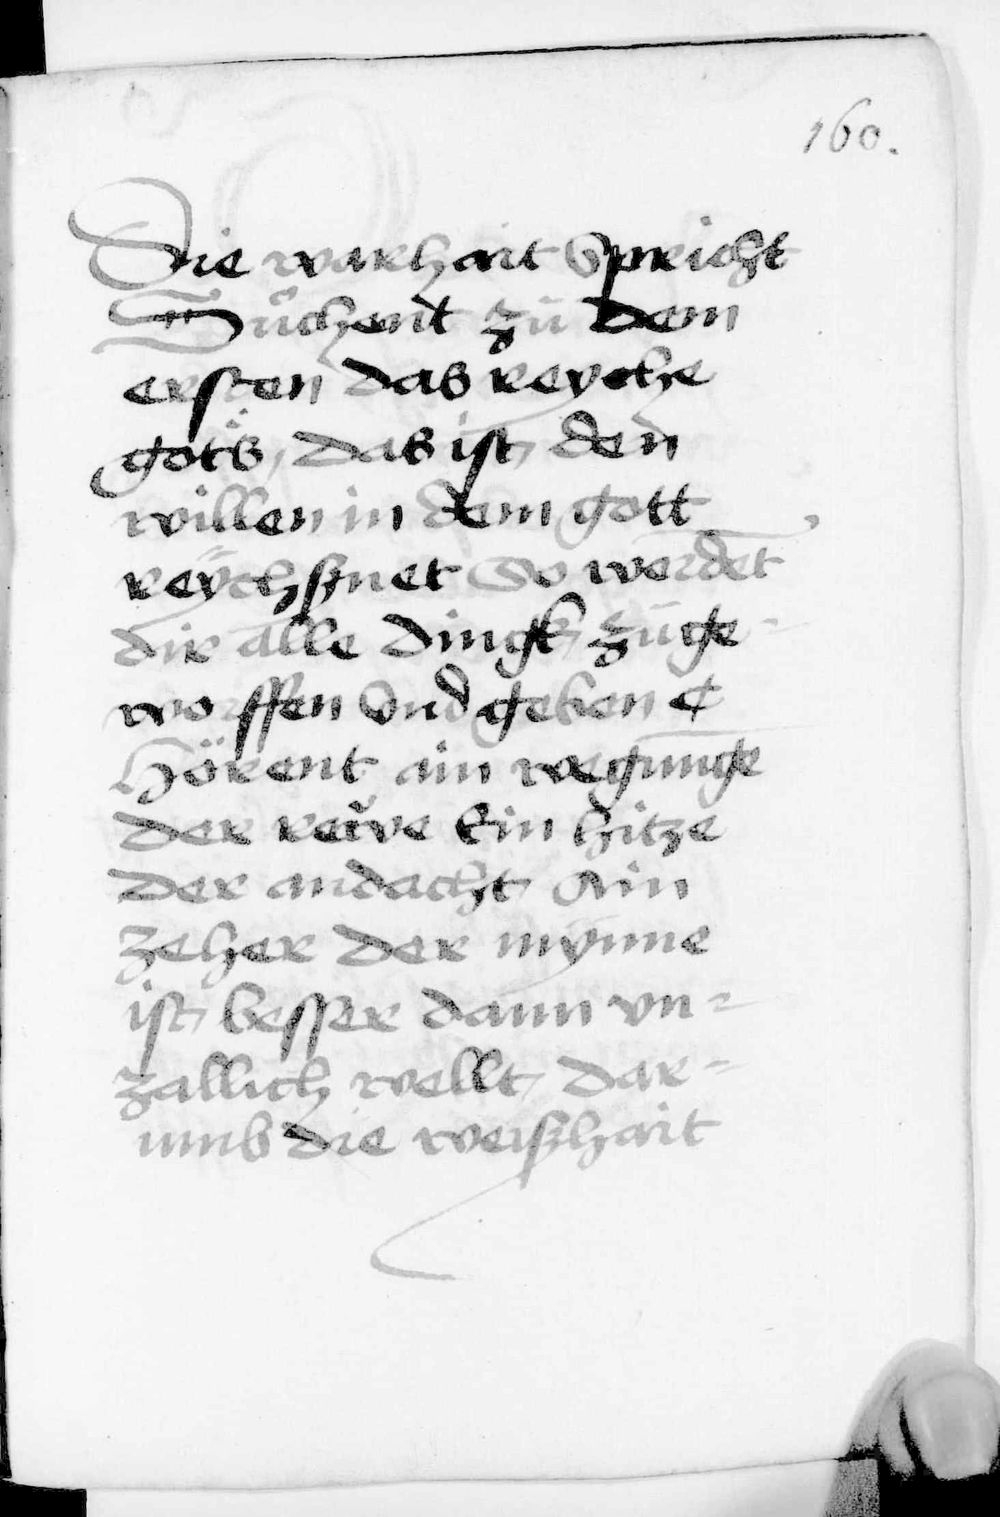 160.
Die warhait Spricht
Sůchent zů dem
ersten das reyche
gots, das ist den
willen in dem gott
reÿchßnet So werdet
dir alle dingk zůge-
worffen vnd geben ¢
Hörent ain regunge
der reẅe Ein hitze
der andacht Ain
zeher der mynne
ist besser dann vn-
zallich wellt, dar-
umb die weißhait